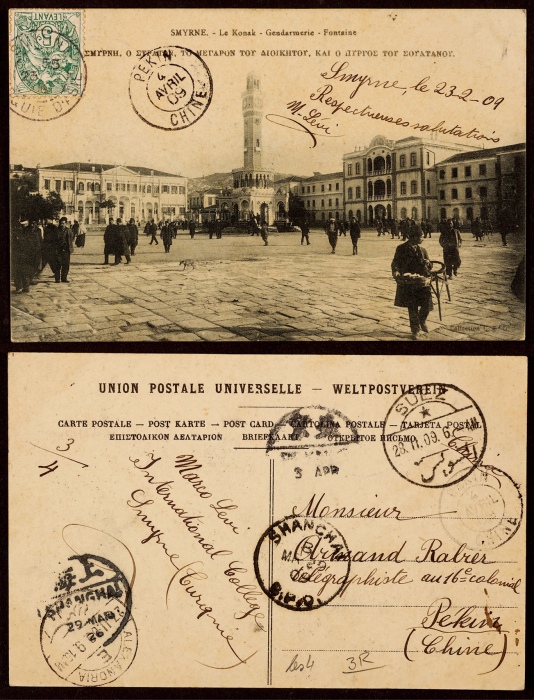 SMYRNE. - Le Konak - Gendarmerie - Fontaine
ΣΜΥΡΝΗ, Ο ΣΤΡΑΤΩΝ, ΤΟ ΜΕΓΑΡΟΝ ΤΟΥ ΔΙΟΙΚΗΤΟΥ, ΚΑΙ Ο ΠΥΡΓΟΣ ΤΟΥ ΣΟΥΛΤΑΝΟΥ.
5
LEVANT
PEKIN
4
AVRIL
09
CHINE
Smyrne, le 23-2-09
Respectueuses salutations
M. Lévi
UNION POSTALE UNIVERSELLE — WELTPOSTVEREIN
CARTE POSTALE — POST KARTE — POST CARD — CARTOLINA POSTALE — TARJETA POSTAL
ΕΠΙΣΤΟΛΙΚΟΝ ΔΕΛΤΑΡΙΟΝ BRIEFKAART ОТКРЫТОЕ ПИСЬМО
SUEZ
28.II.09.6
3/4
3 APR
Mario Levi
International College
Smyrne
(Turquie)
Monsieur
Armand Rabier
télégraphiste au 16e colonial
Pékin
(Chine)
SHANGHAI
MA
09
B.P.O.
SHANGHAI
29 MAR
ALEXANDRIA
3R